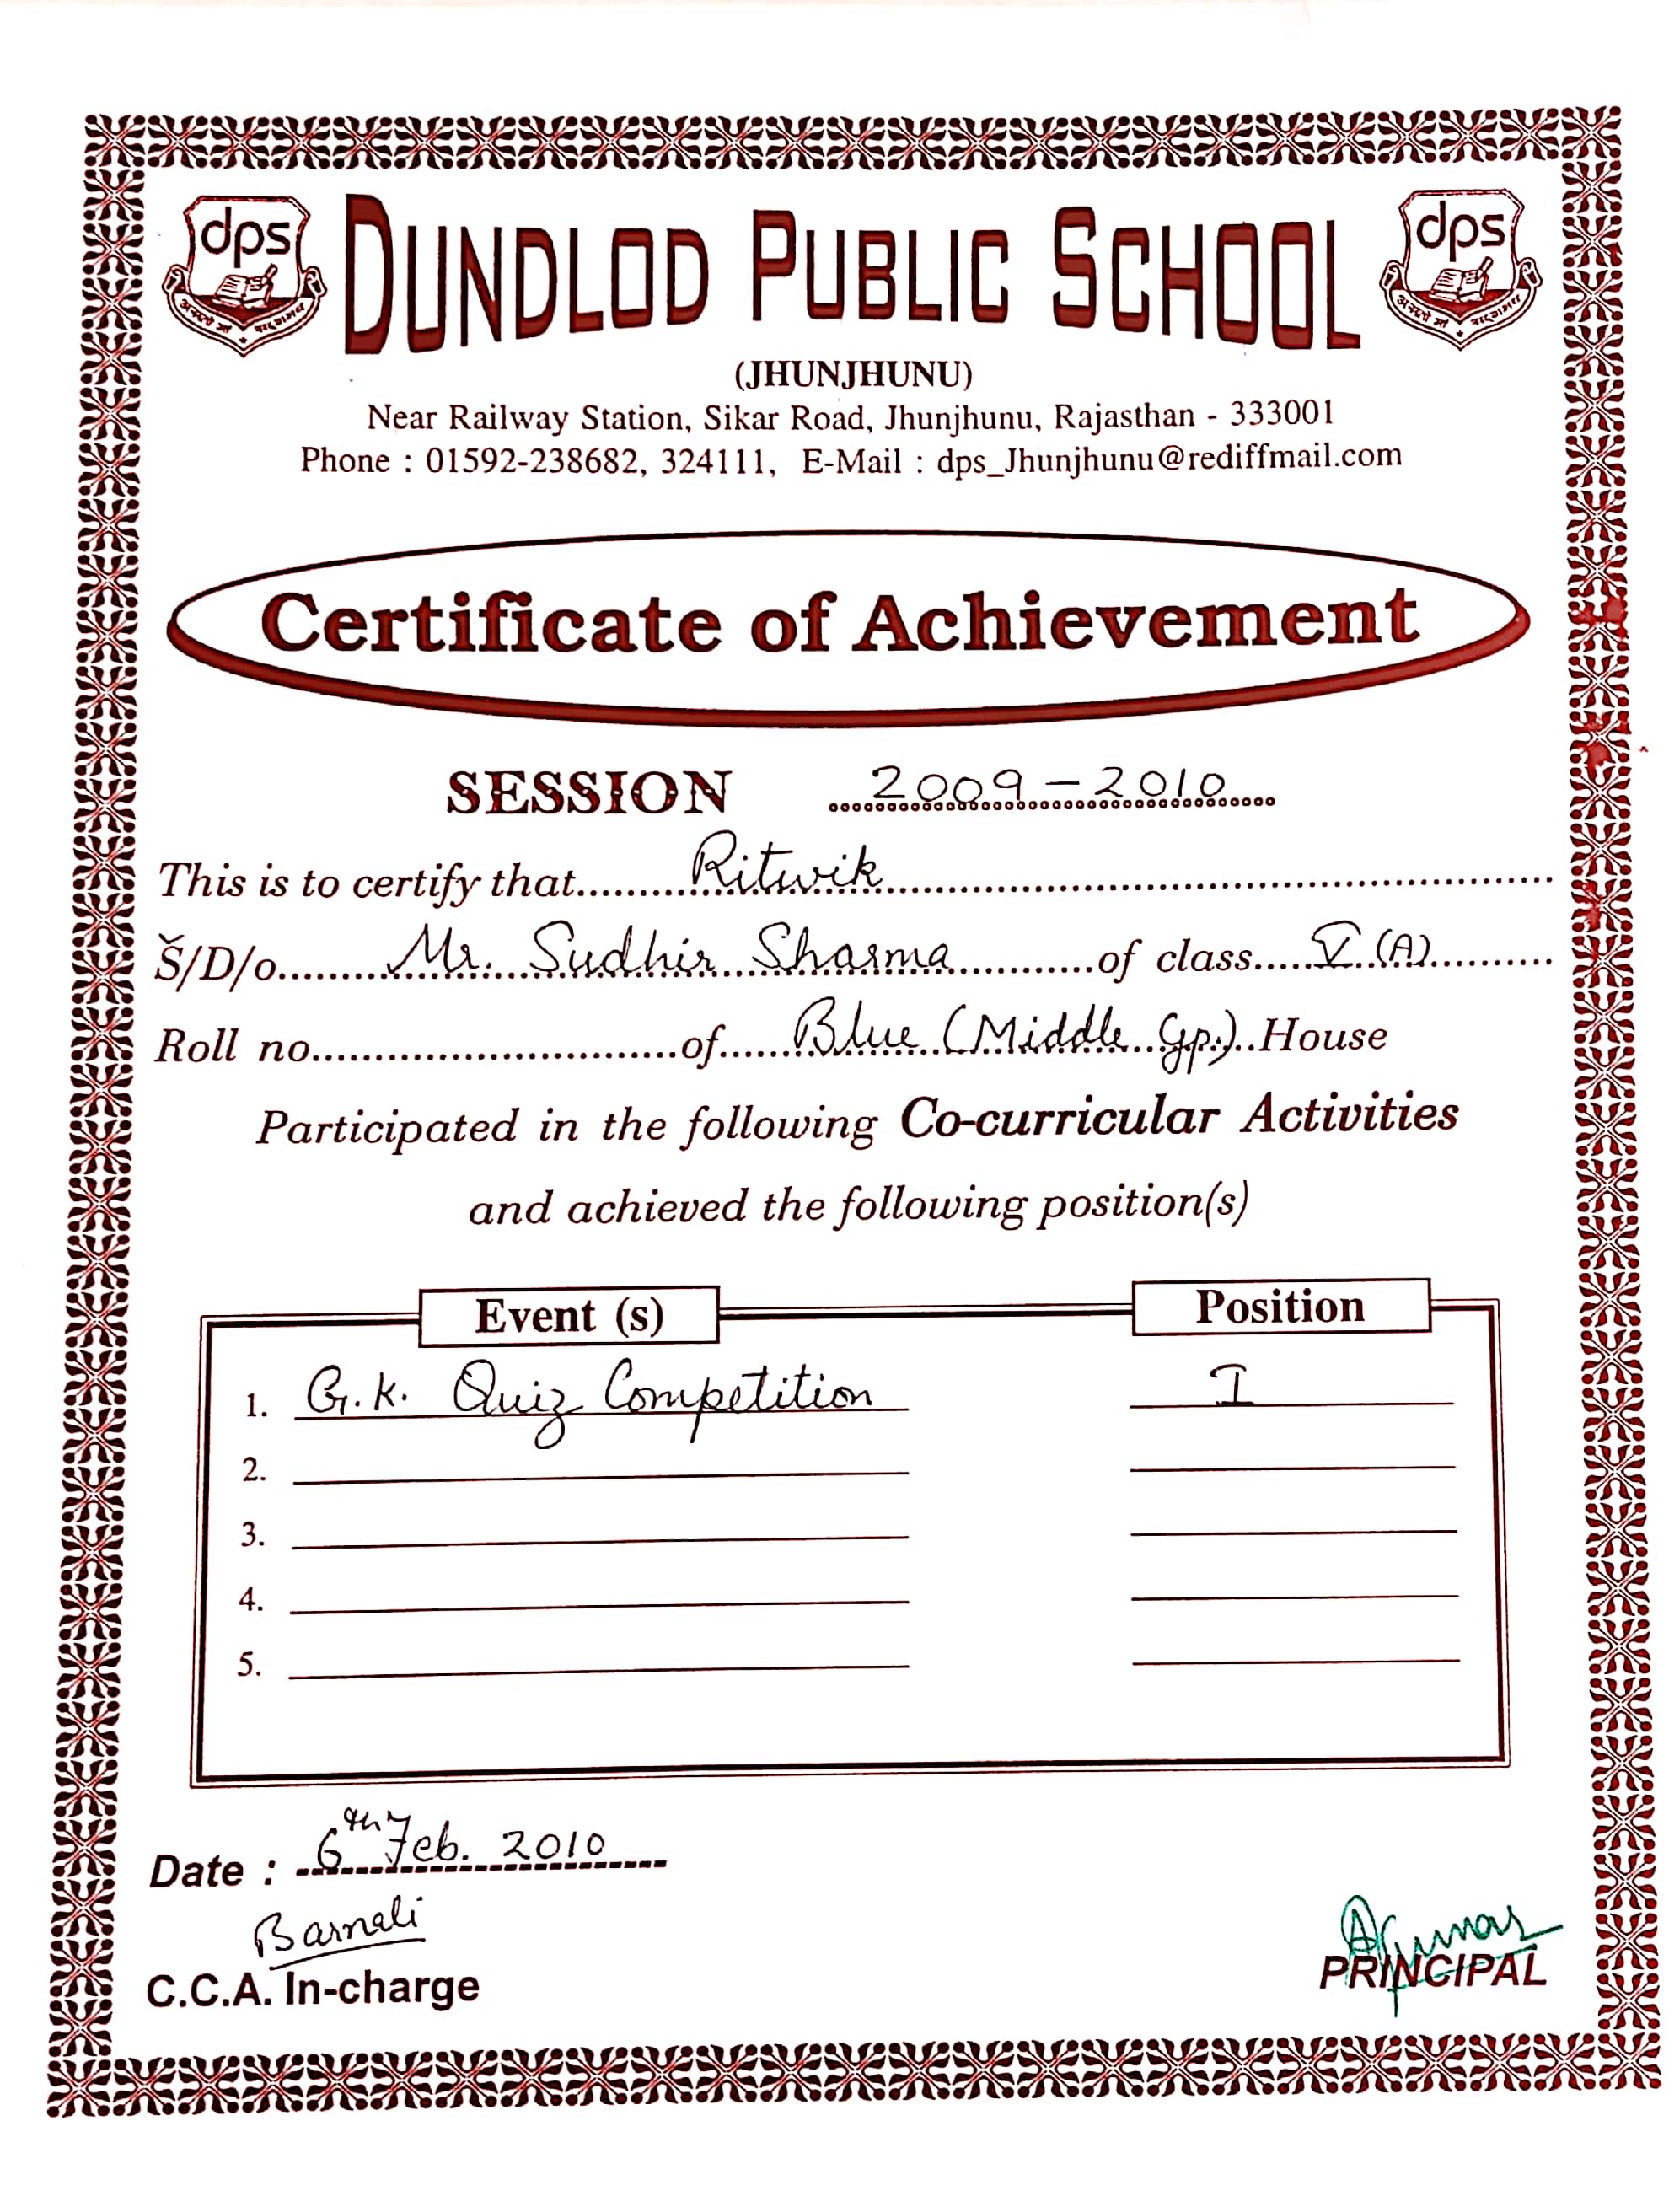 dps DUNDLOD PUBLIC SCHOOL dps
(JHUNJHUNU)
Near Railway Station, Sikar Road, Jhunjhunu, Rajasthan - 333001
Phone : 01592-238682, 324111, E-Mail : dps_Jhunjhunu@rediffmail.com
Certificate of Achievement
SESSION 2009-2010
This is to certify that Ritwik
S/D/o Mr. Sudhir Sharma of class V (A)
Roll no. of Blue (Middle Gp.) House
Participated in the following Co-curricular Activities
and achieved the following position(s)
Event (s) Position
1. G.K. Quiz Competition I
2.
3.
4.
5.
Date : 6th Feb. 2010
Barnali
C.C.A. In-charge
PRINCIPAL